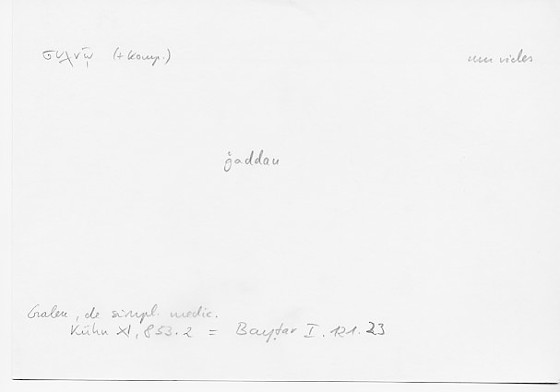 συχνῷ (+ Komp.) um vieles
ǧaddan
Galen, de simpl. medic.
Kühn XI, 853.2 = Bayṭar I. 121.23